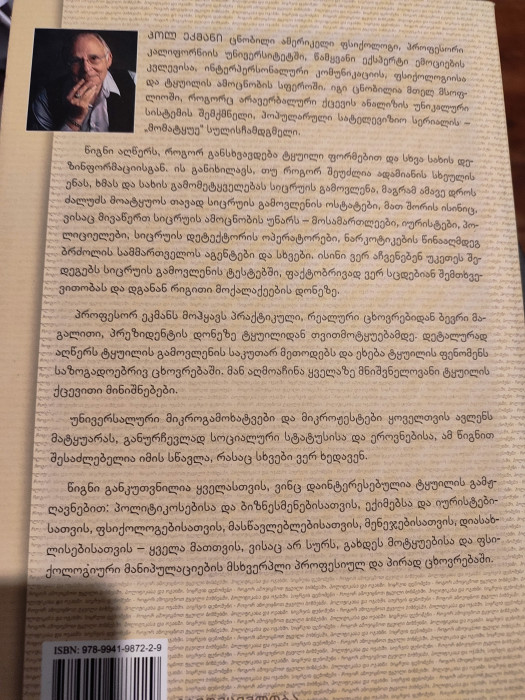 პოლ ეკმანი ცნობილი ამერიკელი ფსიქოლოგი, პროფესორი
კალიფორნიის უნივერსიტეტში, წამყვანი ექსპერტი ემოციების
კვლევისა, ინტერპერსონალური კომუნიკაციის, ფსიქოლოგიისა
და ტყუილის ამოცნობის სფეროში. იგი ცნობილია მთელ მსოფ-
ლიოში, როგორც არავერბალური ქცევის ანალიზის უნიკალური
სისტემის შემქმნელი, პოპულარული სატელევიზიო სერიალის –
„მომატყუე" სულისჩამდგმელი.
წიგნი აღწერს, როგორ განსხვავდება ტყუილი ფორმებით და სხვა სახის დე-
ზინფორმაციისგან. ის განიხილავს, თუ როგორ შეუძლია ადამიანის სხეულის
ენას, ხმას და სახის გამომეტყველებას სიცრუის გამოვლენა, მაგრამ ამავე დროს
ძალუძს მოატყუოს თავად სიცრუის გამოვლენის ოსტატები, მათ შორის ისინიც,
ვისაც მივაწერთ სიცრუის ამოცნობის უნარს – მოსამართლეები, იურისტები, პო-
ლიციელები, სიცრუის დეტექტორის ოპერატორები, ნარკოტიკების წინააღმდეგ
ბრძოლის სამმართველოს აგენტები და სხვები. ისინი ვერ აჩვენებენ უკეთეს შე-
დეგებს სიცრუის გამოვლენის ტესტებში, ფაქტობრივად ვერ სცდებიან შემთხვე-
ვითობას და დგანან რიგითი მოქალაქეების დონეზე.
პროფესორ ეკმანს მოჰყავს პრაქტიკული, რეალური ცხოვრებიდან ბევრი მა-
გალითი, პრეზიდენტის დონეზე ტყუილიდან თვითმოტყუებამდე. დეტალურად
აღწერს ტყუილის გამოვლენის საკუთარ მეთოდებს და ეხება ტყუილის ფენომენს
საზოგადოებრივ ცხოვრებაში. მან აღმოაჩინა ყველაზე მნიშვნელოვანი ტყუილის
ქცევითი მინიშნებები.
უნივერსალური მიკროგამოხატვები და მიკროჟესტები ყოველთვის ავლენს
მატყუარას, განურჩევლად სოციალური სტატუსისა და ეროვნებისა, ამ წიგნით
შესაძლებელია იმის სწავლა, რასაც სხვები ვერ ხედავენ.
წიგნი განკუთვნილია ყველასთვის, ვინც დაინტერესებულია ტყუილის გამჟ-
ღავნებით: პოლიტიკოსებისა და ბიზნესმენებისათვის, ექიმებსა და იურისტები-
სათვის, ფსიქოლოგებისათვის, მასწავლებლებისათვის, მენეჯებისათვის, დიასახ-
ლისებისათვის – ყველა მათთვის, ვისაც არ სურს, გახდეს მოტყუებისა და ფსი-
ქოლოგიური მანიპულაციების მსხვერპლი პროფესიულ და პირად ცხოვრებაში.
ISBN: 978-9941-9872-2-9